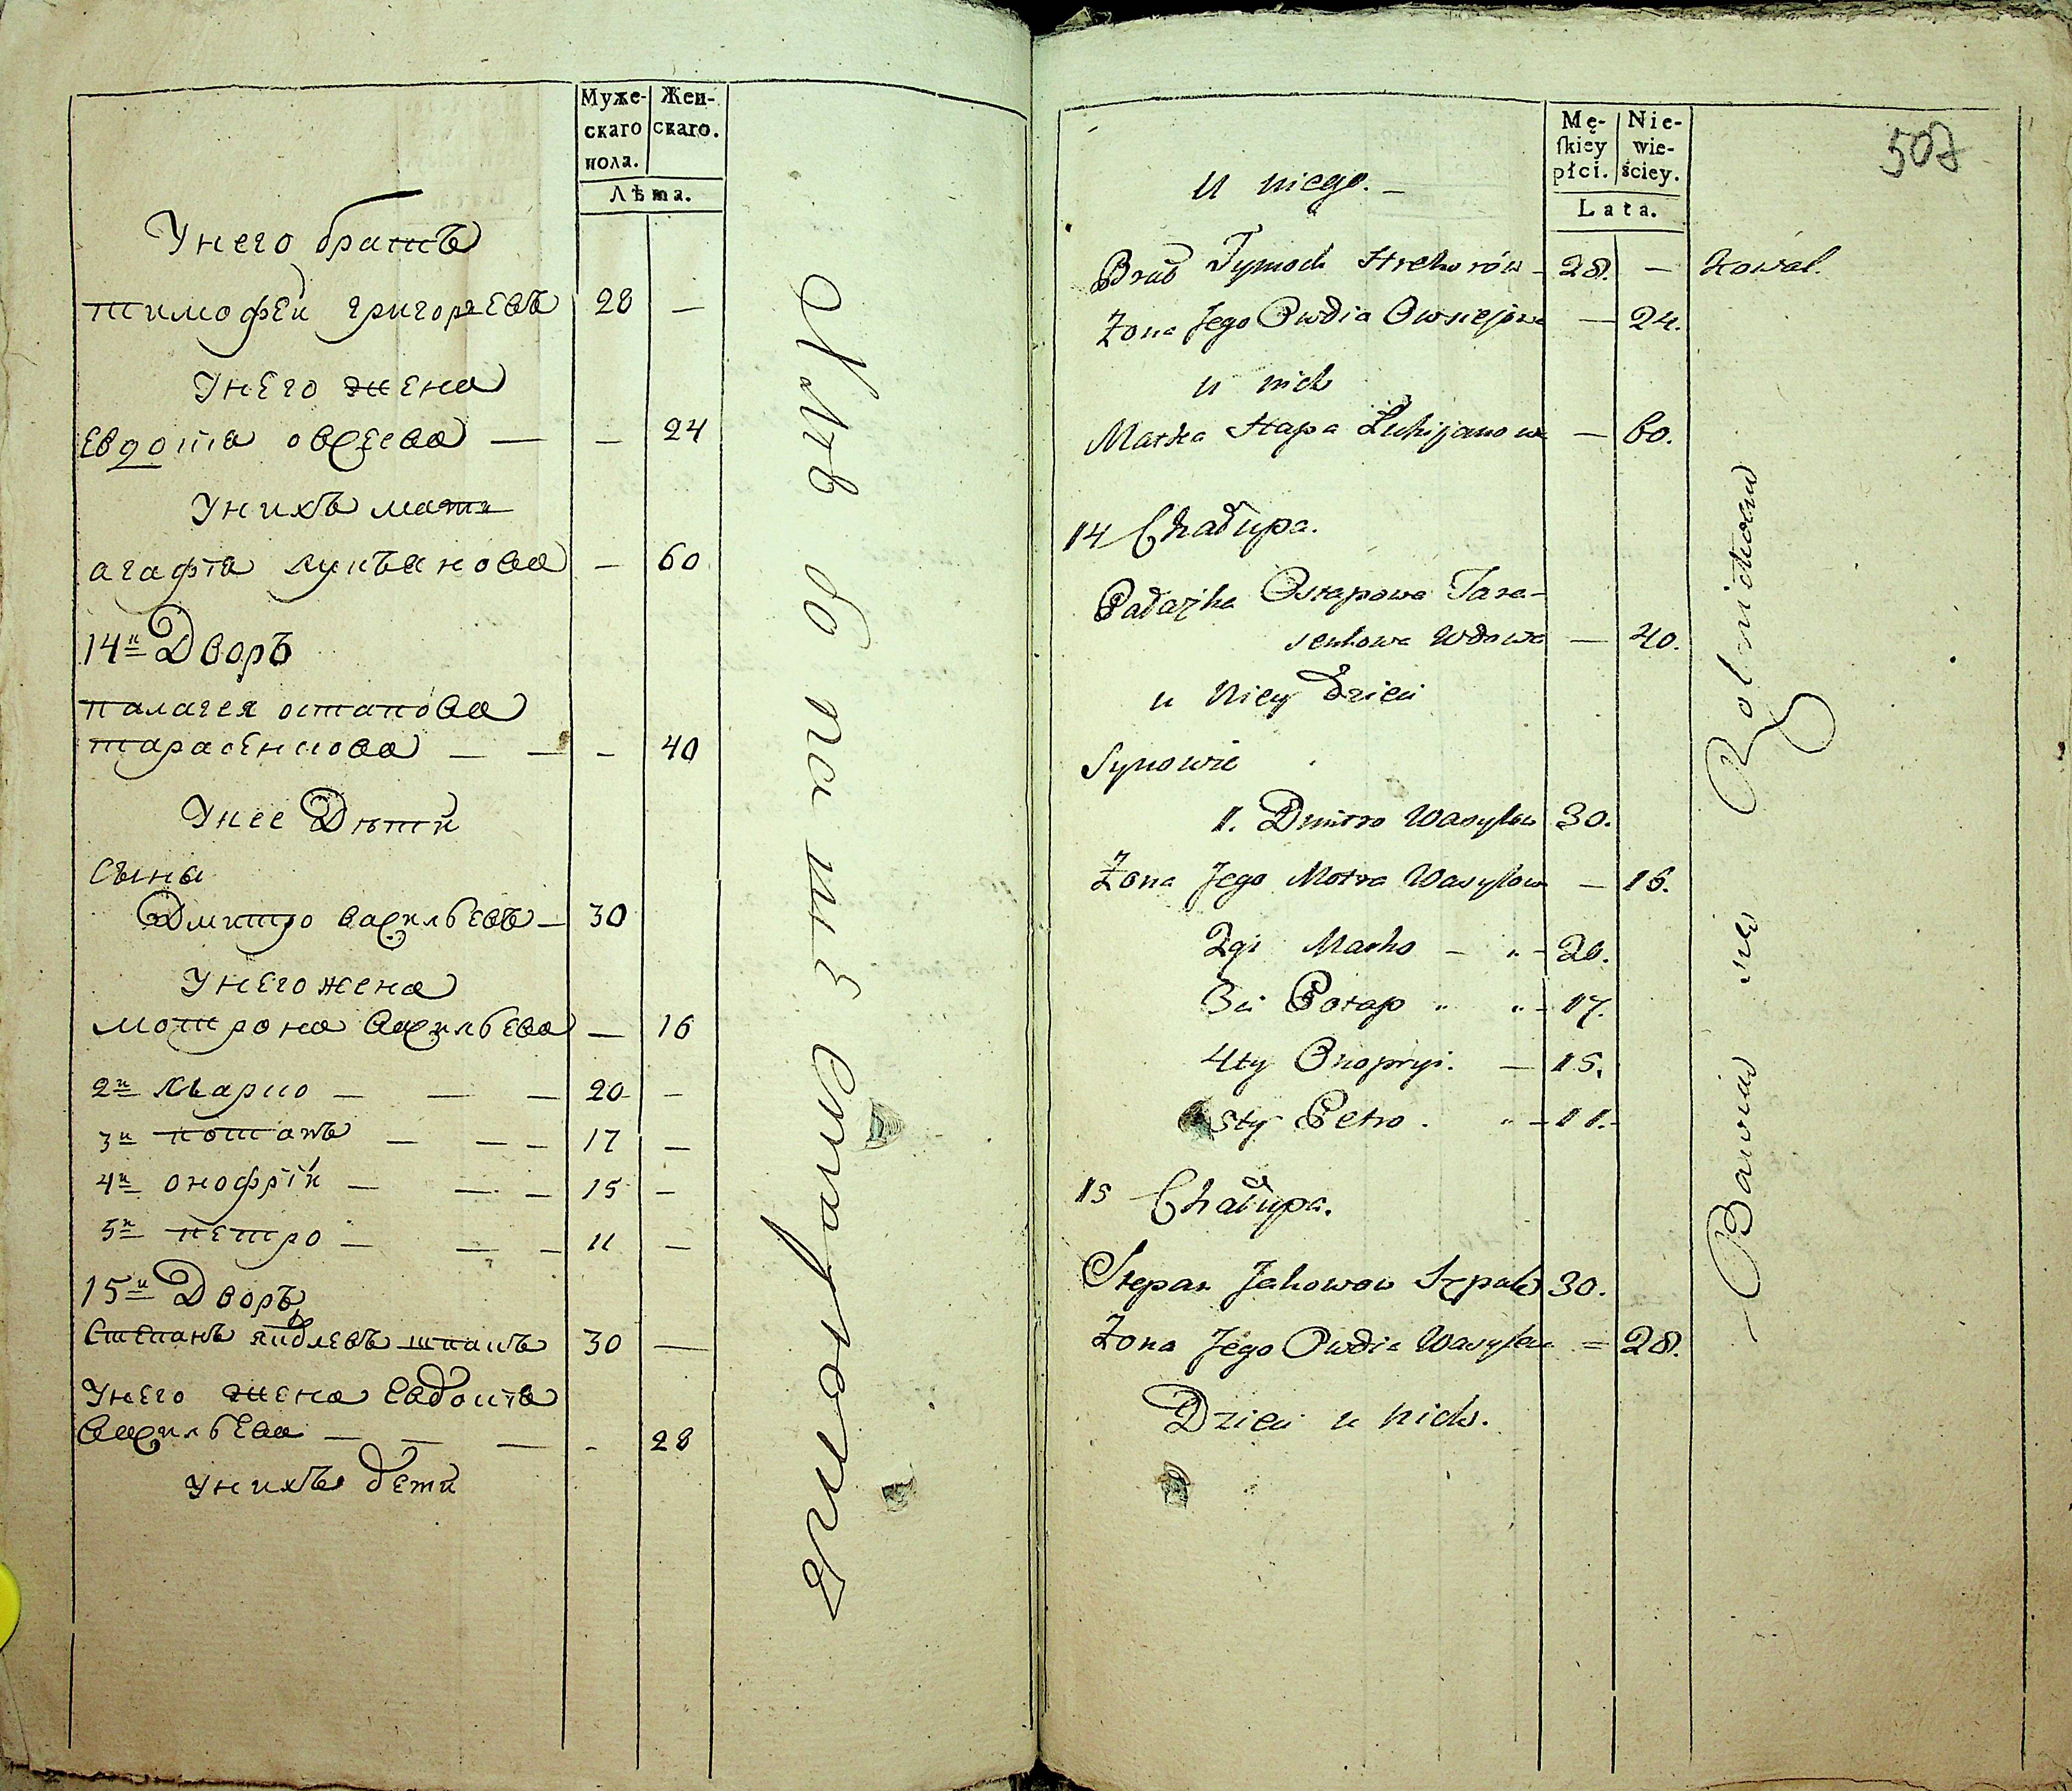 Муже-
скаго
пола.
Жен-
скаго.
Лѣта.
У него братъ
тимофеи григорьевъ 28 —
У него жена
Евдокiя овсеева — — 24
У нихъ мати
агафiя лукьянова — 60
14й Дворъ
палагея остапова
тарасенкова — — — 40
У нее Дѣти
Сыны
Дмитро васильевъ — 30
У него жена
мотрона васильева — 16
2й Марко — — — 20 —
3й потапъ — — — 17 —
4й онофрiй — — — 15 —
5й петро — — — 11 —
15й Дворъ
Степанъ яковлевъ шпакъ 30 —
У него жена Евдокiя
васильева — — — - 28
У нихъ дети
Mę-
ſkiéy
płci.
Nie-
wie-
ściey.
Lata.
507
u niego. —
Brat Tymoch Hrehorów — 28. — Kowal.
Zona Jego Owdia Owsiejowa — 24.
u nich
Matka Hapa Łukijanowa — 60.
14 Chałupa.
Pałazka Ostapowa Tara-
senkowa Wdowa — 40.
u Niey Dzieci
Synowie
1. Dmitro Wasylow 30.
Zona Jego Motra Wasylowa — 16.
2gi Marko — " — 20.
3ci Potap " " — 17.
4ty Onopryi. — 15.
5ty Petro. " — 11. —
15 Chałupa.
Stepan Jakowow Szpak 30.
Zona Jego Owdia Wasylewa = 28.
Dzieci u nich.
Bawią się Rolnictwem